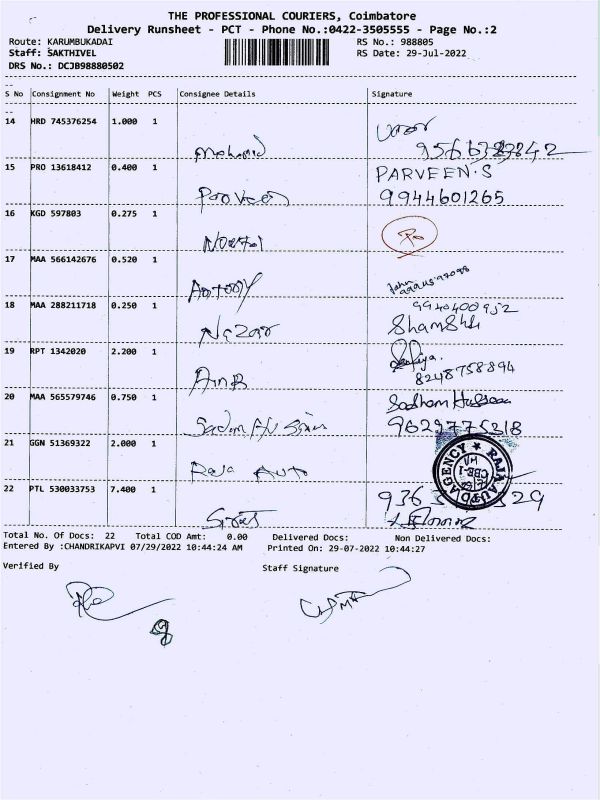 THE PROFESSIONAL COURIERS, Coimbatore
Delivery Runsheet - PCT - Phone No.:0422-3505555 - Page No.:2
Route: KARUMBUKADAI RS No.: 988805
Staff: SAKTHIVEL RS Date: 29-Jul-2022
DRS No.: DCJB98880502
S No Consignment No Weight PCS Consignee Details Signature
14 HRD 745376254 1.000 1
15 PRO 13618412 0.400 1 PARVEEN.S
Parveen 9944601265
16 KGD 597803 0.275 1
17 MAA 566142676 0.520 1
Antony John
18 MAA 288211718 0.250 1 9940400952
Nazar
19 RPT 1342020 2.200 1
8248758894
20 MAA 565579746 0.750 1 Sadham Hussain
Sadam Hussain
21 GGN 51369322 2.000 1
Raja Auto RAJA AUTO AGENCY
22 PTL 530033753 7.400 1
Total No. Of Docs: 22 Total COD Amt: 0.00 Delivered Docs: Non Delivered Docs:
Entered By :CHANDRIKAPVI 07/29/2022 10:44:24 AM Printed On: 29-07-2022 10:44:27
Verified By Staff Signature